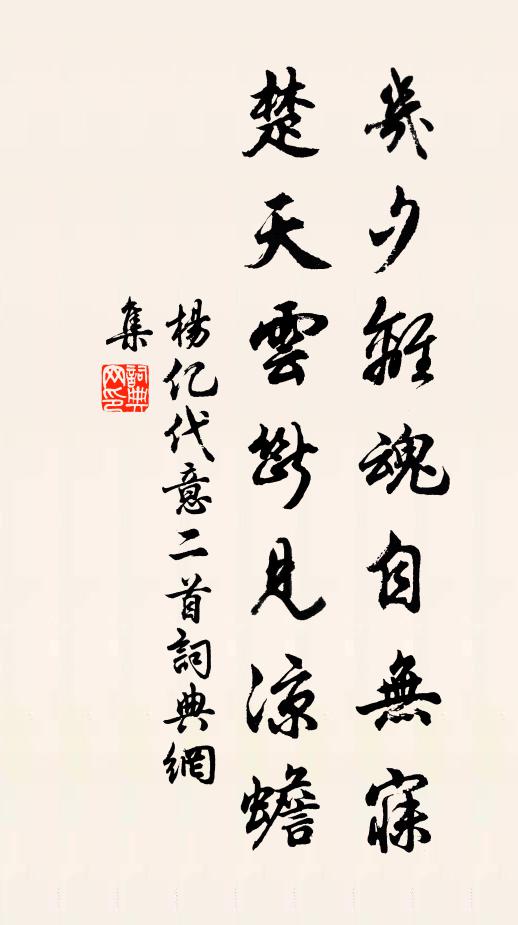 幾夕離魂自無寐
楚天雲斷見涼蟾
楊億代意二首詞典網
集
詞典網印